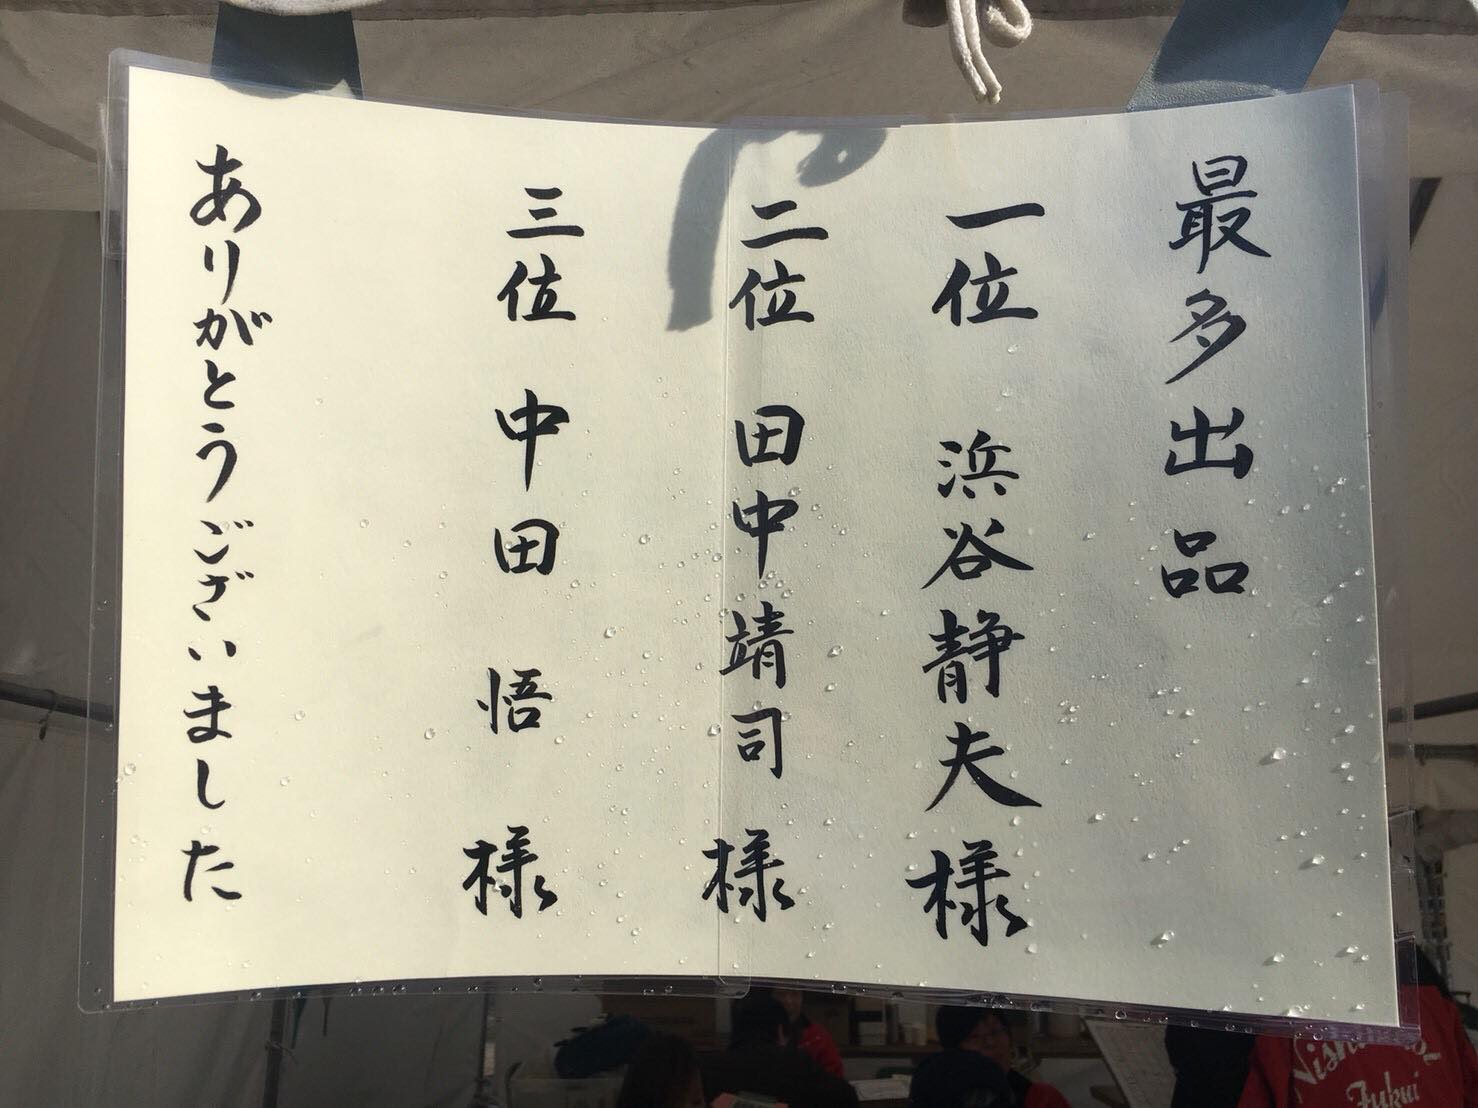 最多出品
一位 浜谷静夫様
二位 田中靖司様
三位 中田 悟 様
ありがとうございました
Fukui